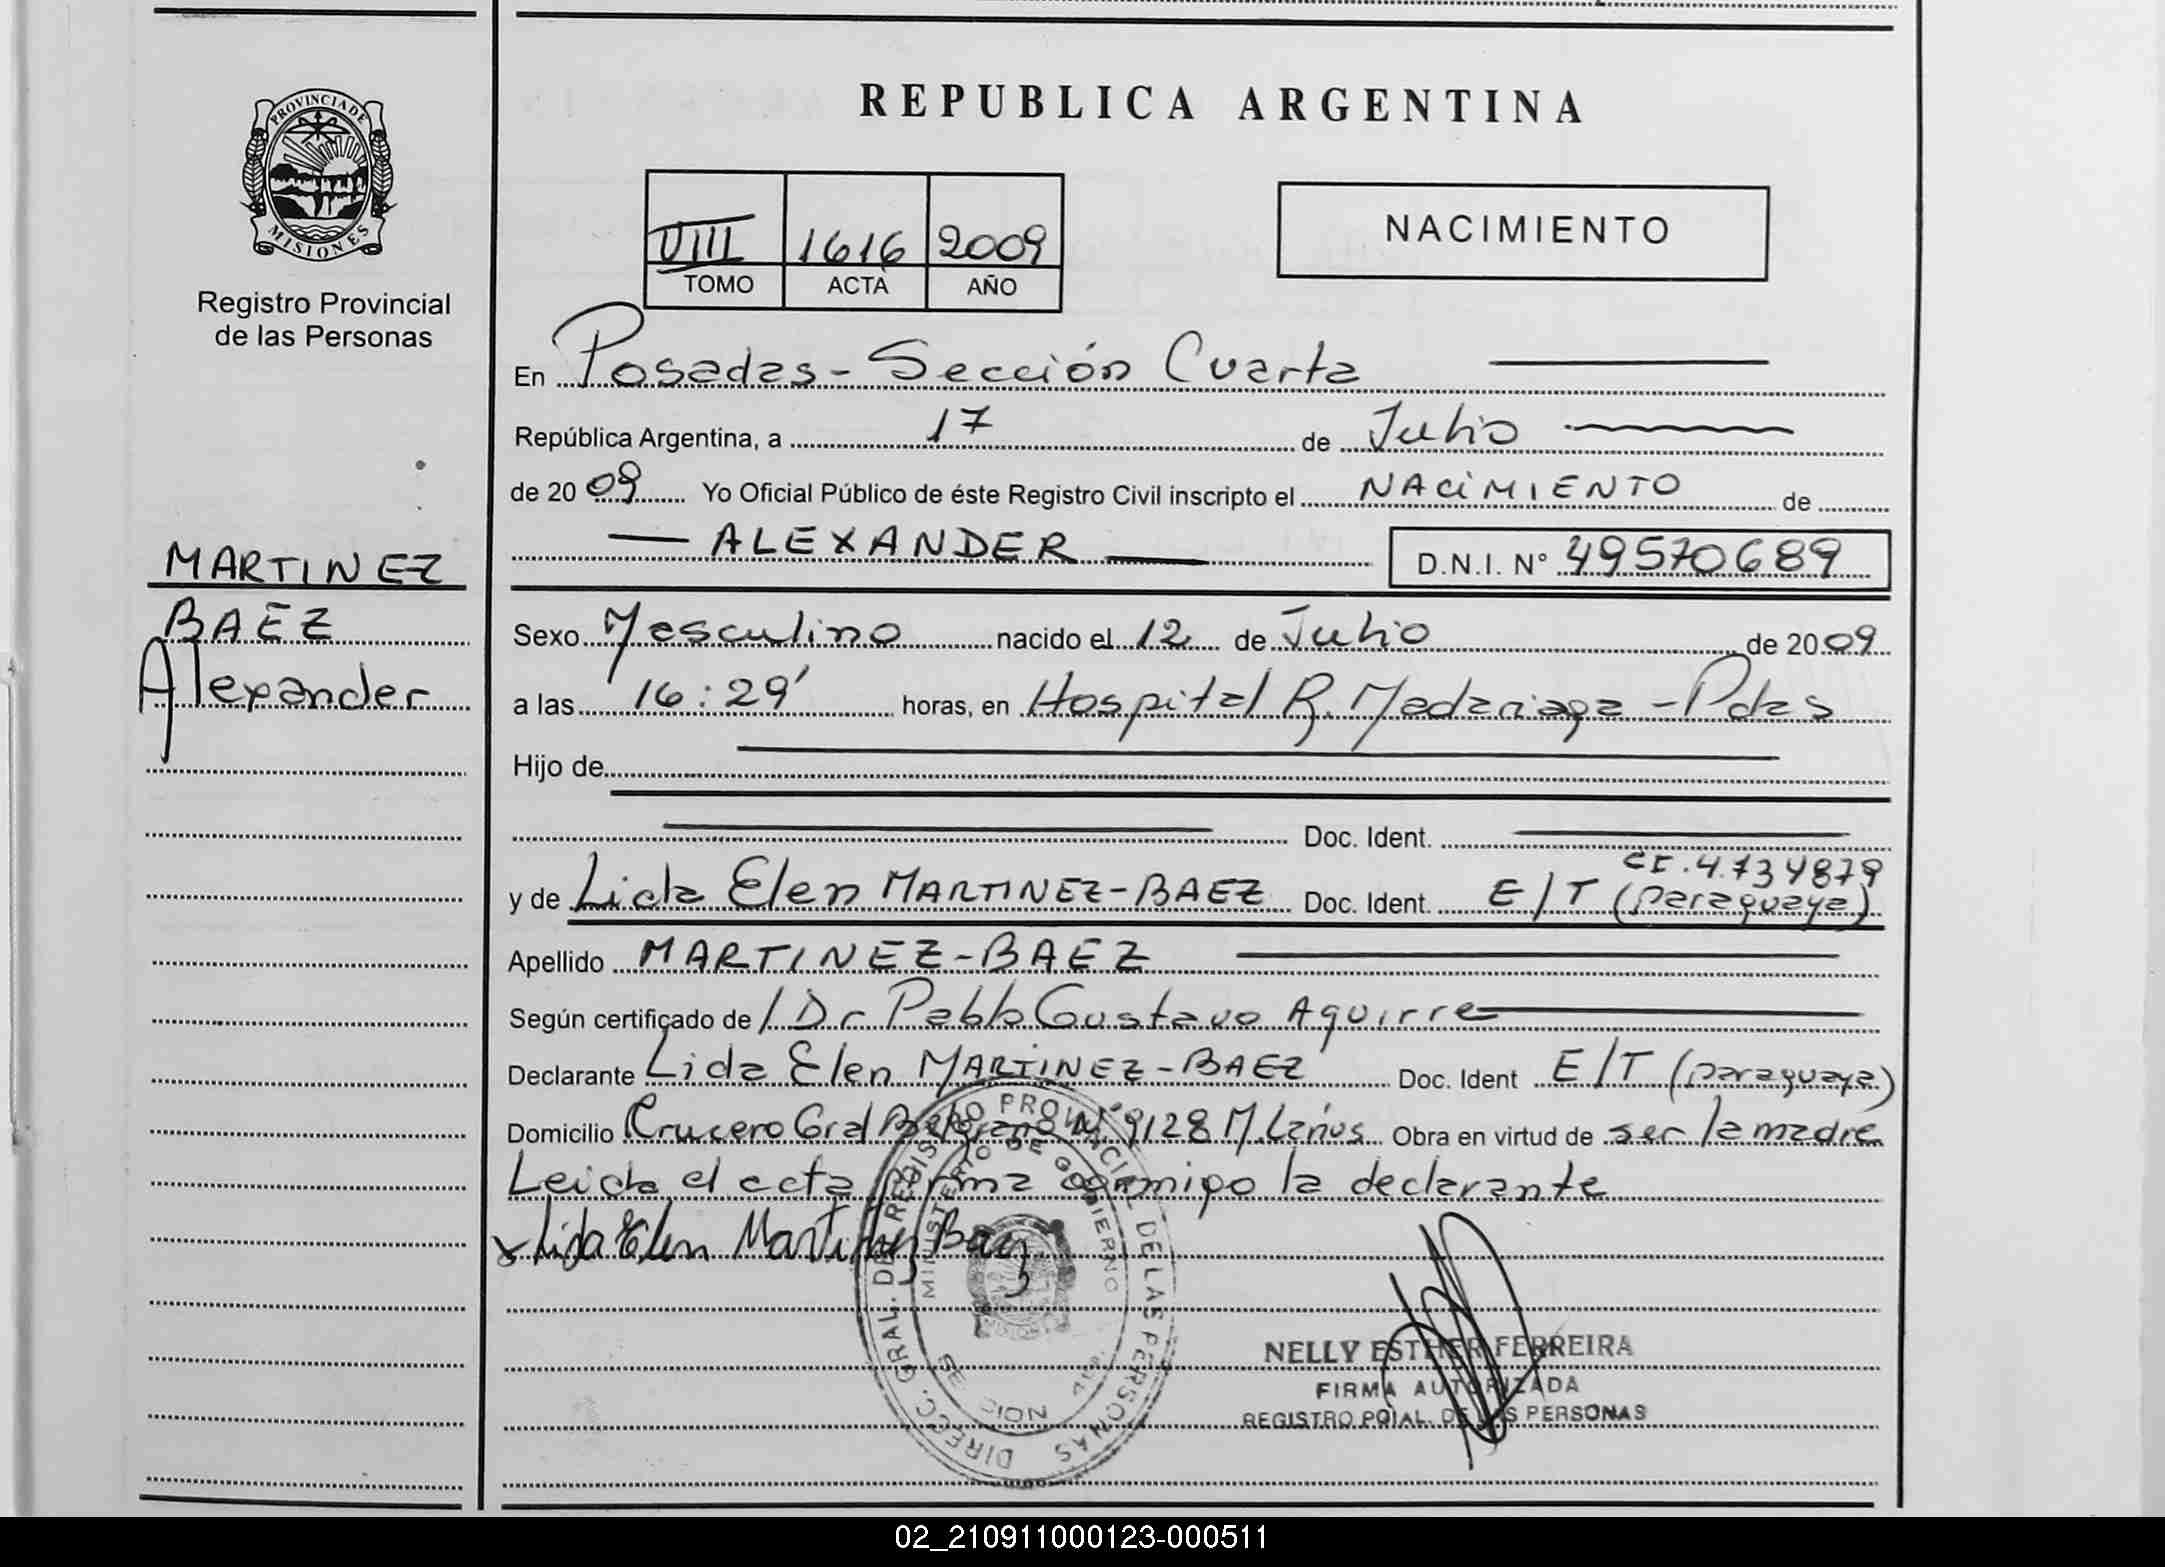 PROVINCIA DE
MISIONES
Registro Provincial
de las Personas
MARTINEZ
BAEZ
Alexander
REPUBLICA ARGENTINA
VIII 1616 2009
TOMO ACTA AÑO
NACIMIENTO
En Posadas - Sección Cuarta
República Argentina, a 17 de Julio
de 20 09 Yo Oficial Público de éste Registro Civil inscripto el NACIMIENTO de
ALEXANDER D.N.I. N° 49570689
Sexo Masculino nacido el 12 de Julio de 20 09
a las 16:29' horas, en Hospital R. Madariaga - Pdas
Hijo de
Doc. Ident.
CI. 4.734879
y de Lida Elen MARTINEZ-BAEZ Doc. Ident. E/T (paraguaya)
Apellido MARTINEZ-BAEZ
Según certificado de / Dr Pablo Gustavo Aguirre
Declarante Lida Elen MARTINEZ-BAEZ Doc. Ident E/T (paraguaya)
Domicilio Crucero Gral Belgrano N° 9128 M. Lanús Obra en virtud de ser la madre
Leida el acta firma conmigo la declarante
Lida Elen Martinez Baez
DIRECC. GRAL. DEL REGISTRO PROVINCIAL DE LAS PERSONAS
MINISTERIO DE GOBIERNO
NELLY ESTHER FERREIRA
FIRMA AUTORIZADA
REGISTRO PCIAL. DE LAS PERSONAS
02_210911000123-000511